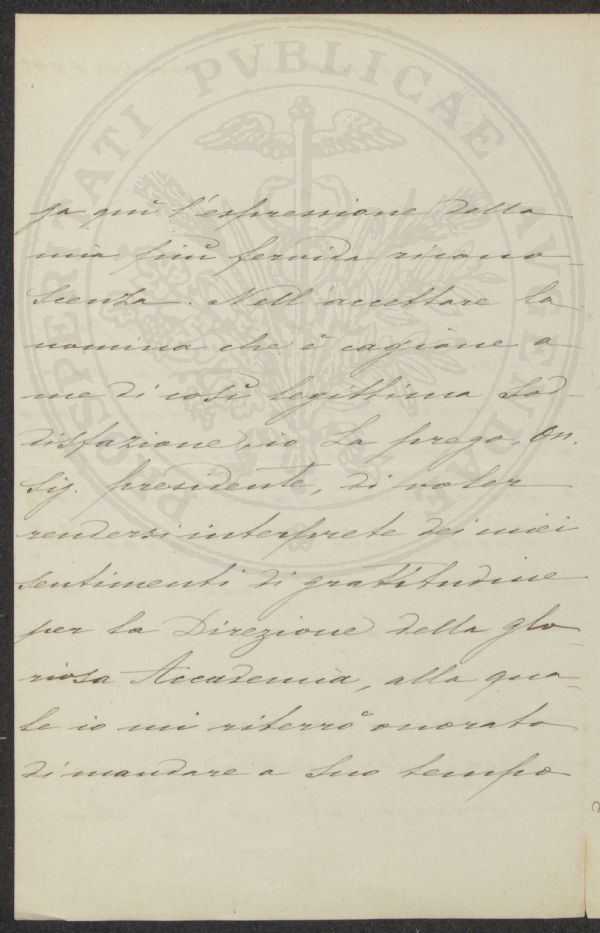 PROSPERITATI PVBLICAE AVGENDAE
ga qui l'espressione della
mia più fervida ricono-
scenza. Nell'accettare la
nomina che è cagione a
me di così legittima sod-
disfazione, io La prego, On.
Sig. presidente, di voler
rendersi interprete dei miei
sentimenti di gratitudine
per la Direzione della glo-
riosa Accademia, alla qua-
le io mi riterrò onorato
di mandare a suo tempo